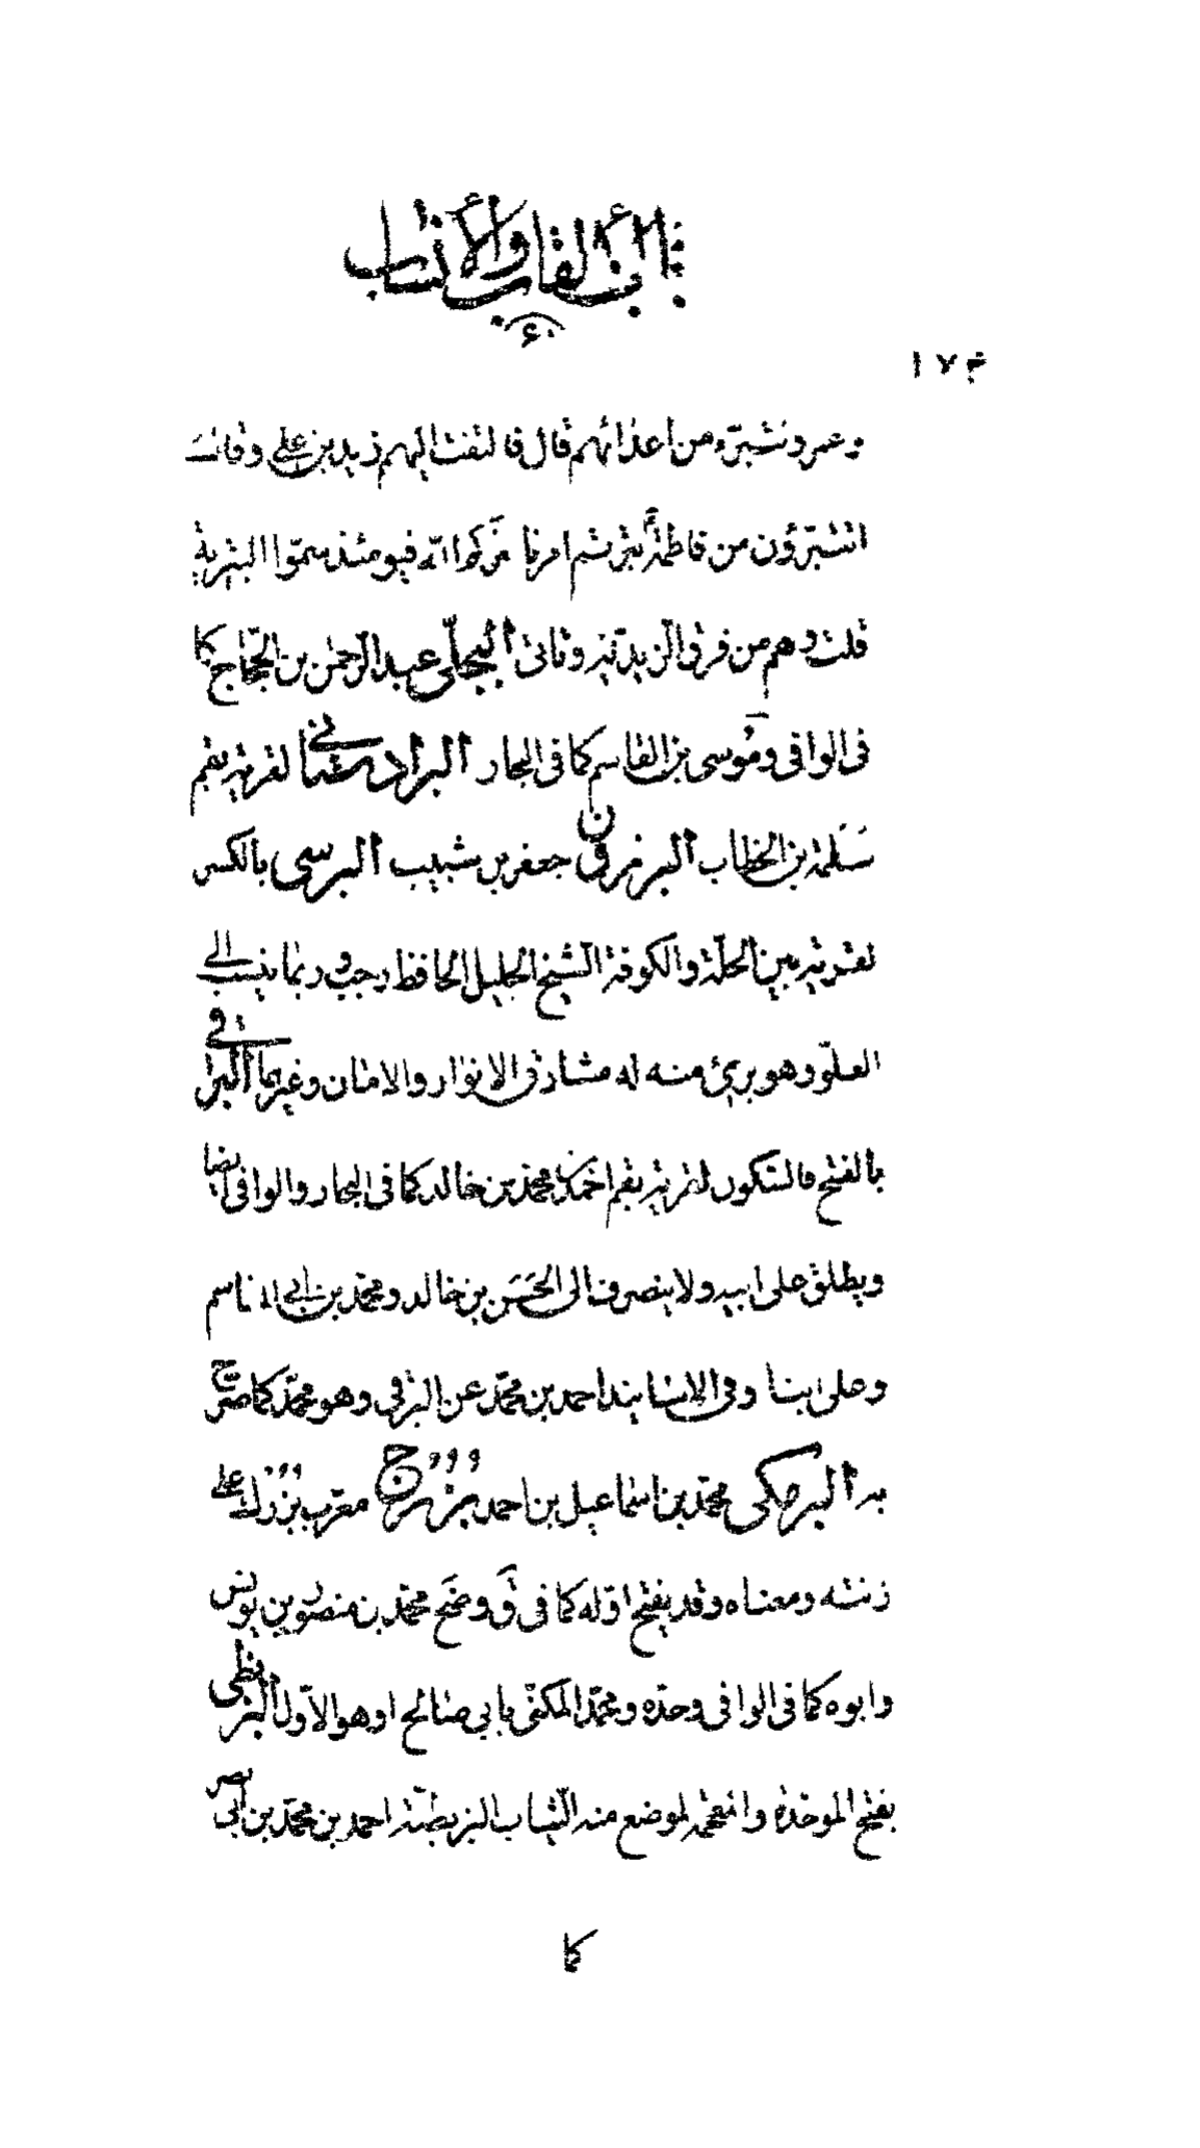 باب الألقاب والأنساب
١٧٣
وعمر ونتبرّء من اعدائهم قال فالتفت اليهم زيد بن علي وقال
اتتبرّؤن من فاطمة بترتم امرنا بتركم الله فيومئذ سمّوا البترية
قلت وهم من فرق الزيديّة وثاني البجلّي عبد الرّحمٰن بن الحجّاج كا
في الوافي وموسى بن القاسم كما في البحار البراوستاني لقرية بقم
سَلَمة بن الخطاب البرزمرقن جعفر بن شبيب البرسي بالكسر
لقرية بين الحلّة والكوفة الشّيخ الجليل الحافظ رجب وربّما ينسب الى
الغلوّ وهو بريئ منه له مشارق الانوار والامان وغيرهما البرقي
بالفتح فالسّكون لقرية بقم احمد بن محمّد بن خالد كما في البحار والوافي ايضا
ويطلق على ابيه ولا ينصرف الى الحَسَن بن خالد ومحمّد بن ابي القاسم
وعلى ابنا وفي الاسانيد احمد بن محمّد عن البرقي وهو محمّد كما صرّح
به البرمكى محمّد بن اسماعيل بن احمد بزرج معرّب بزرك على
زنته ومعناه وقد يفتح اوّله كما في ق وضح محمّد بن منصور بن يونس
وابوه كما في الوافي وحده ومحمّد المكنّى بابي صالح او هو الاوّل البزنطى
بفتح الموحّدة والمعجمة لموضع منه الثّياب البزنطيّة احمد بن محمّد بن ابي نصر
كما